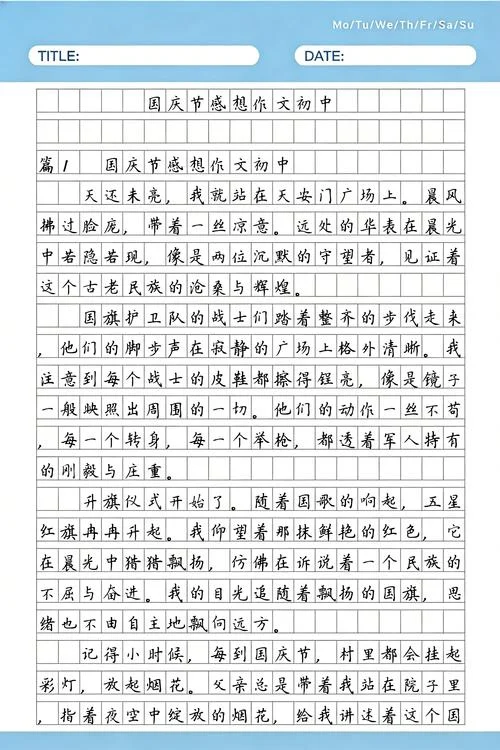 Mo/Tu/We/Th/Fr/Sa/Su
TITLE:
DATE:
国庆节感想作文初中
篇1 国庆节感想作文初中
天还未亮，我就站在天安门广场上。晨风
拂过脸庞，带着一丝凉意。远处的华表在晨光
中若隐若现，像是两位沉默的守望者，见证着
这个古老民族的沧桑与辉煌。
国旗护卫队的战士们踏着整齐的步伐走来
，他们的脚步声在寂静的广场上格外清晰。我
注意到每个战士的皮鞋都擦得锃亮，像是镜子
一般映照出周围的一切。他们的动作一丝不苟
，每一个转身，每一个举枪，都透着军人特有
的刚毅与庄重。
升旗仪式开始了。随着国歌的响起，五星
红旗冉冉升起。我仰望着那抹鲜艳的红色，它
在晨光中猎猎飘扬，仿佛在诉说着一个民族的
不屈与奋进。我的目光追随着飘扬的国旗，思
绪也不由自主地飘向远方。
记得小时候，每到国庆节，村里都会挂起
彩灯，放起烟花。父亲总是带着我站在院子里
，指着夜空中绽放的烟花，给我讲述着这个国